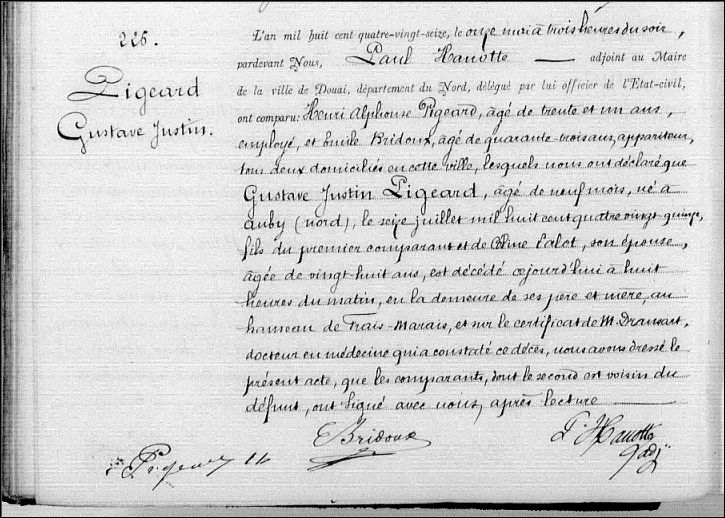 226.
Pigeard
Gustave Justin.
L'an mil huit cent quatre-vingt-seize, le onze mai à trois heures du soir,
pardevant Nous, Paul Hanotte — adjoint au Maire
de la ville de Douai, département du Nord, délégué par lui officier de l'Etat-civil,
ont comparu: Henri Alphonse Pigeard, âgé de trente et un ans,
employé, et Emile Bridoux, âgé de quarante-trois ans, appariteur,
tous deux domiciliés en cette ville, lesquels nous ont déclaré que
Gustave Justin Pigeard, âgé de neuf mois, né à
Auby (nord), le seize juillet mil huit cent quatre vingt-quinze,
fils du premier comparant et de Céline Calot, son épouse,
âgée de vingt-huit ans, est décédé cejourd'hui à huit
heures du matin, en la demeure de ses père et mère, au
hameau de Frais-Marais, et sur le certificat de M. Dransart,
docteur en médecine qui a constaté ce décès, nous avons dressé le
présent acte, que les comparants, dont le second est voisin du
défunt, ont signé avec nous, après lecture —
Bridoux
P. Hanotte
adj.
Pigeard H